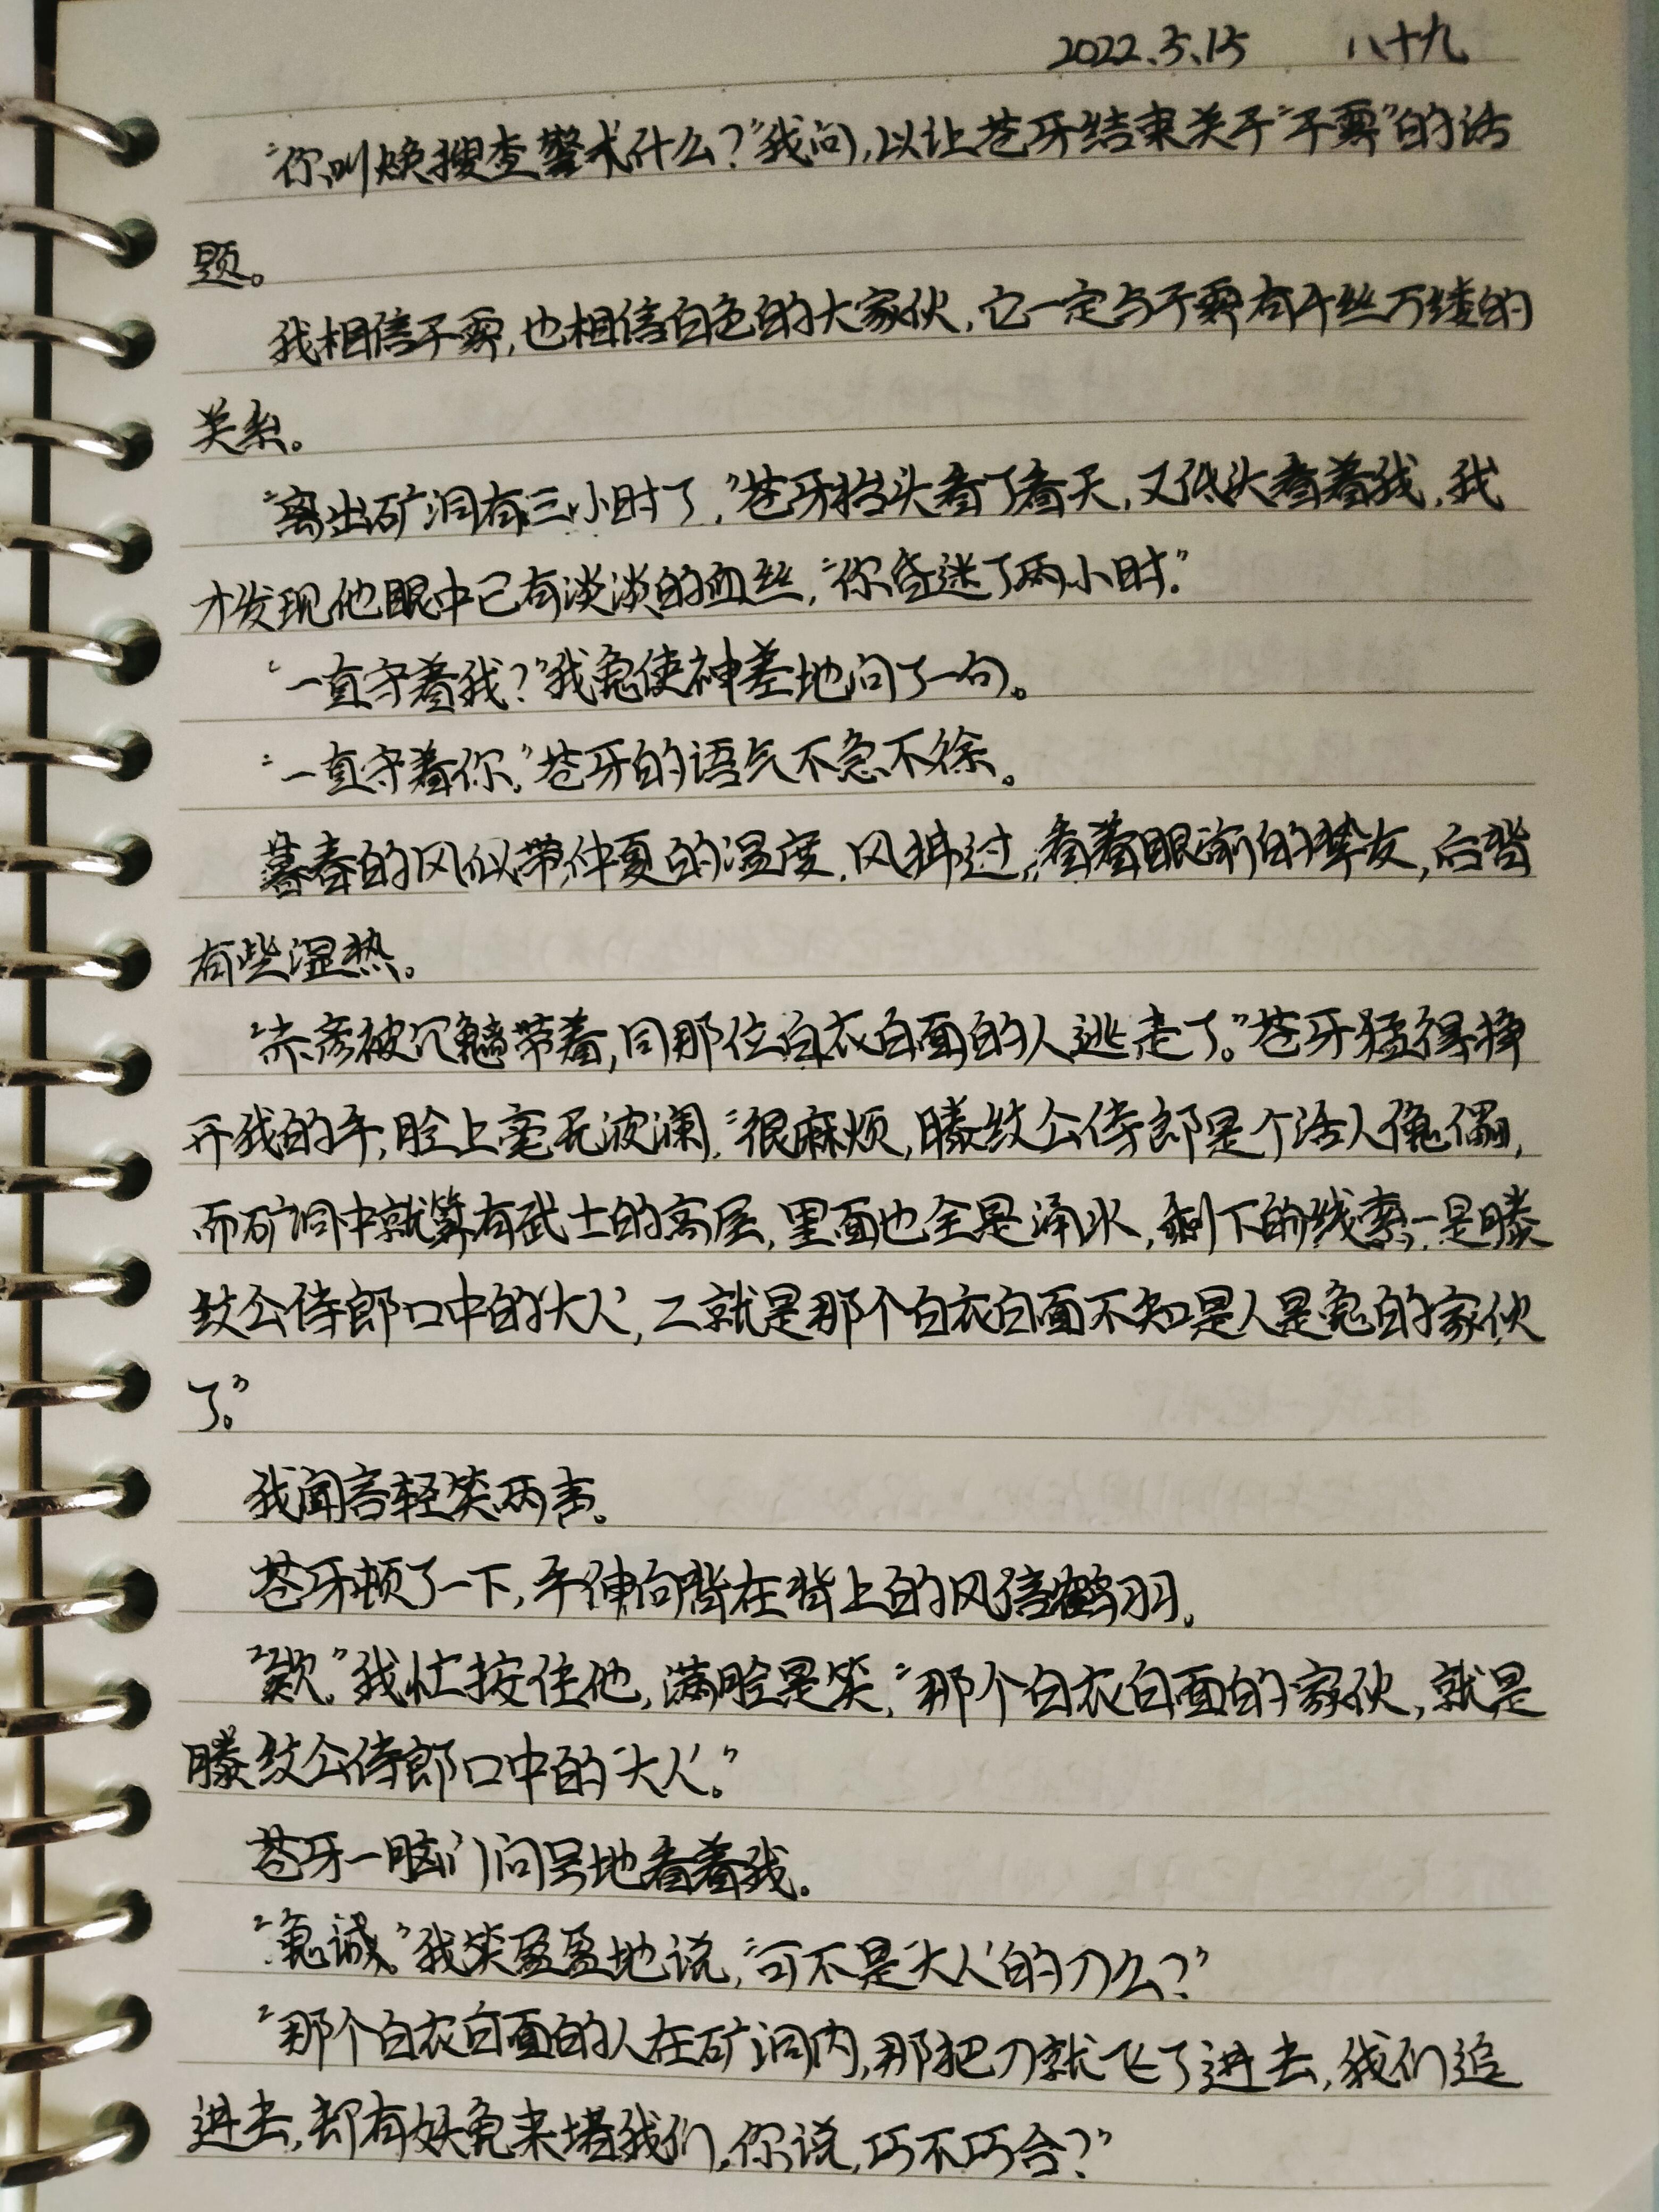 2022.5.15 八十九
“你叫焕搜查警术什么？”我问，以让苍牙结束关于“子要”的话
题。
我相信子要，也相信白色的大家伙，它一定与子要有千丝万缕的
关系。
“离出矿洞有三小时了，”苍牙抬头看了看天，又低头看着我，我
才发现他眼中已有淡淡的血丝，“你昏迷了两小时。”
“一直守着我？”我鬼使神差地问了一句。
“一直守着你。”苍牙的语气不急不徐。
暮春的风似带仲夏的温度，风拂过，看着眼前的挚友，后背
有些湿热。
“赤彦被冗魑带着，同那位白衣白面的人逃走了。”苍牙猛得挣
开我的手，脸上毫无波澜，“很麻烦，滕纹公侍郎是个活人傀儡，
而矿洞中就算有武士的高层，里面也全是涌水，剩下的线索，一是滕
纹公侍郎口中的‘大人’，二就是那个白衣白面不知是人是鬼的家伙
了。”
我闻言轻笑两声。
苍牙顿了一下，手伸向背在背上的风信鹤羽。
“欸。”我忙按住他，满脸是笑，“那个白衣白面的家伙，就是
滕纹公侍郎口中的‘大人’。”
苍牙一脑门问号地看着我。
“鬼诚。”我笑盈盈地说，“可不是‘大人’的刀么？”
“那个白衣白面的人在矿洞内，那把刀就飞了进去，我们追
进去，却有妖鬼来堵我们，你说，巧不巧合？”